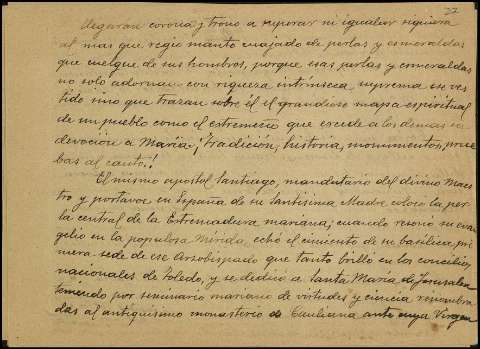 22
llegaran corona y trono a superar ni igualar siquiera
al mas que regio manto cuajado de perlas y esmeraldas
que cuelgue de sus hombros, porque esas perlas y esmeraldas
no solo adornan con riqueza intrinseca suprema ese ves
tido sino que trazan sobre él el grandioso mapa espiritual
de un pueblo como el extremeño que excede a los demas en
devoción a María; ¡tradición, historia, monumentos, prue
bas al canto!
El mismo apostol Santiago, mandatario del divino Maes
tro y portavoz en España de su Santísima Madre colocó la per
la central de la Extremadura mariana; cuando resonó su evan
gelio en la populosa Mérida echó el cimiento de su basilica, pri
mera sede de ese Arzobispado que tanto brilló en los concilios
nacionales de Toledo, y se dedicó a Santa María de Jerusalen
teniendo por seminario mariano de virtudes y ciencia renombra
das al antiquisimo monasterio de Cauliana ante cuya Virgen